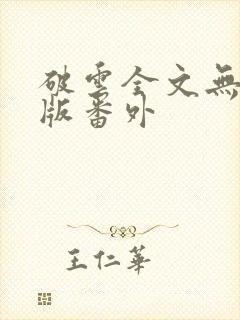 破雲全文無
版番外
王仁華